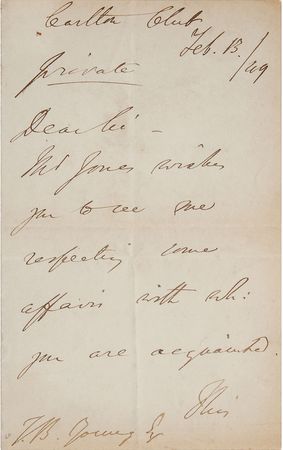 Carlton Club
Feb. 13/49
private
Dear Sir –
Mr Jones wishes
you to see me
respecting some
affairs with wh:
you are acquainted.
This
T. B. Young Esq